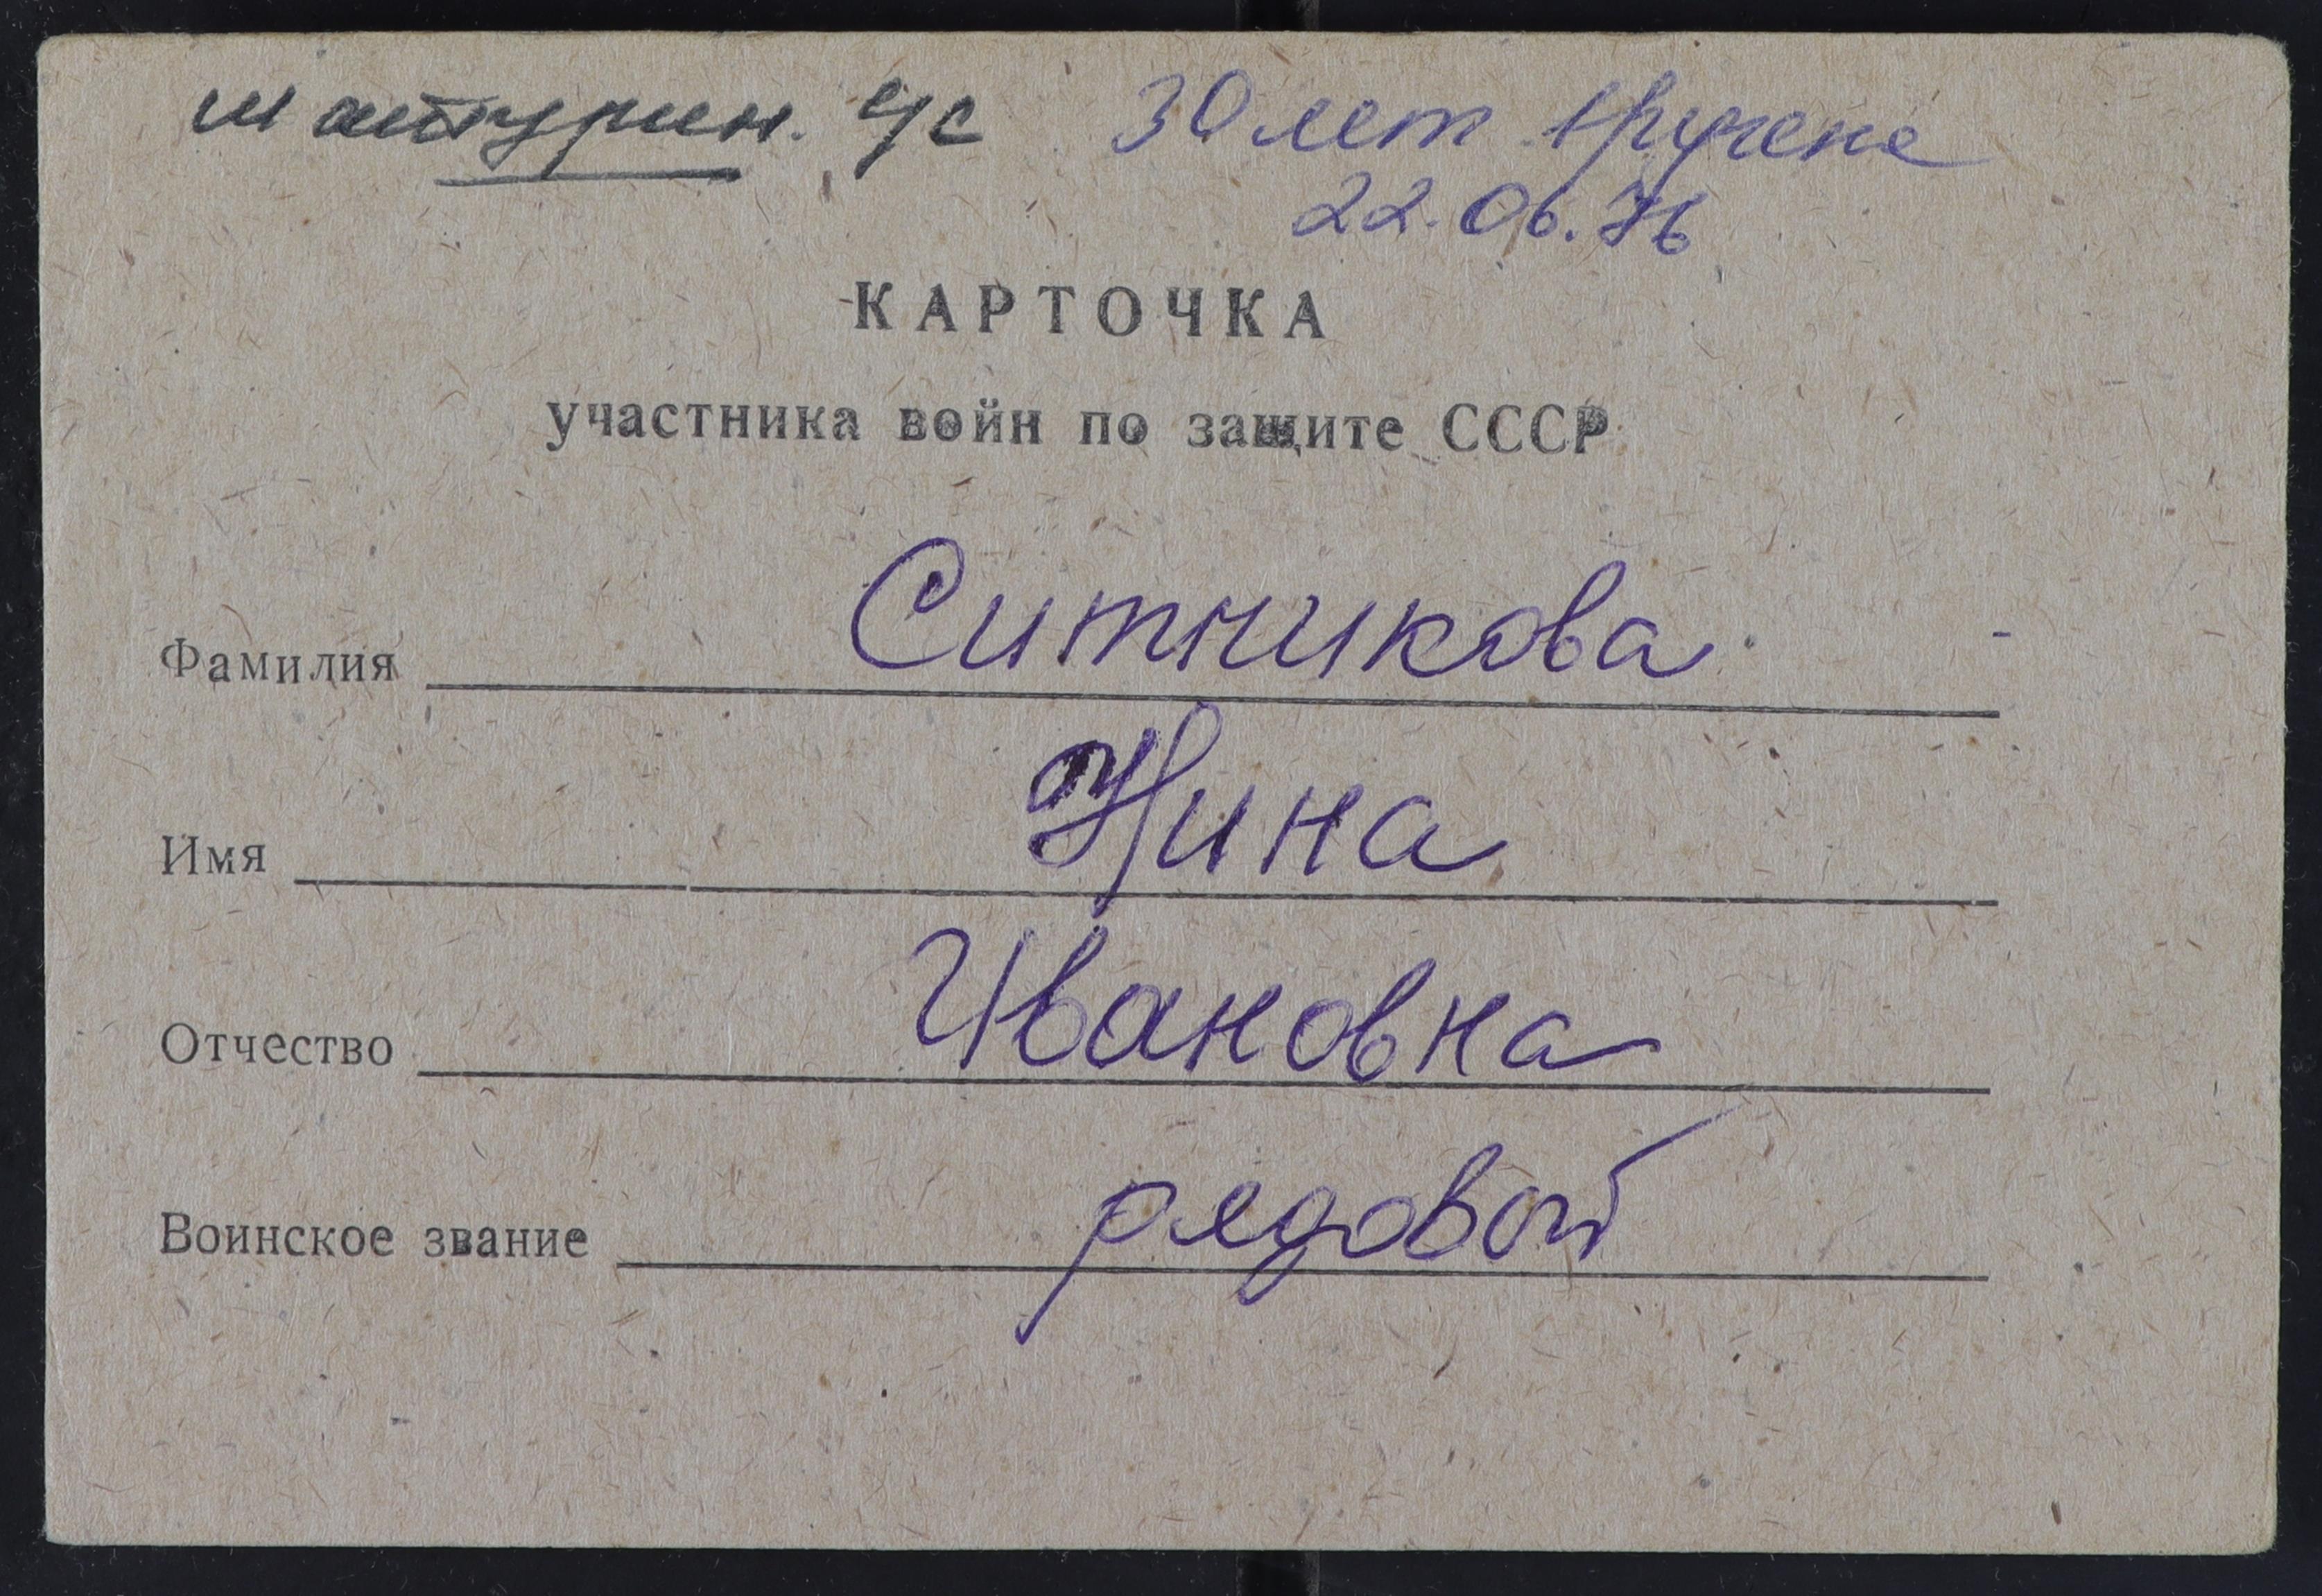 Шатурин. ус 30 лет вручена
22.06.76
КАРТОЧКА
участника войн по защите СССР
Фамилия Ситникова
Имя Нина
Отчество Ивановна
Воинское звание рядовой